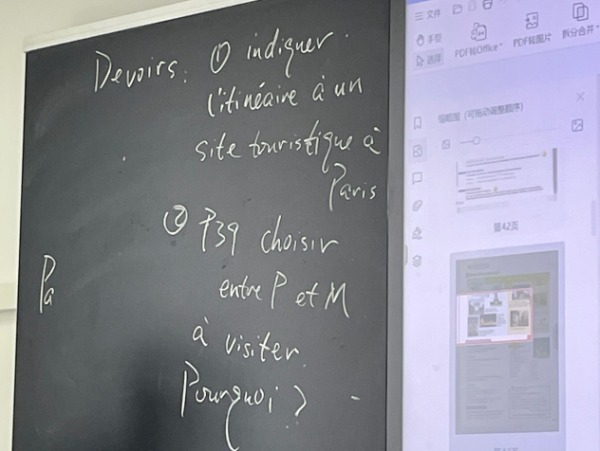 Devoirs: ① indiquer
l'itinéaire à un
site touristique à
Paris
② P39 choisir
entre P et M
à visiter.
Pourquoi ?
Pa
文件
手型
选择
PDF转Office
PDF转图片
拆分合并
缩略图（可拖动调整顺序）
第42页